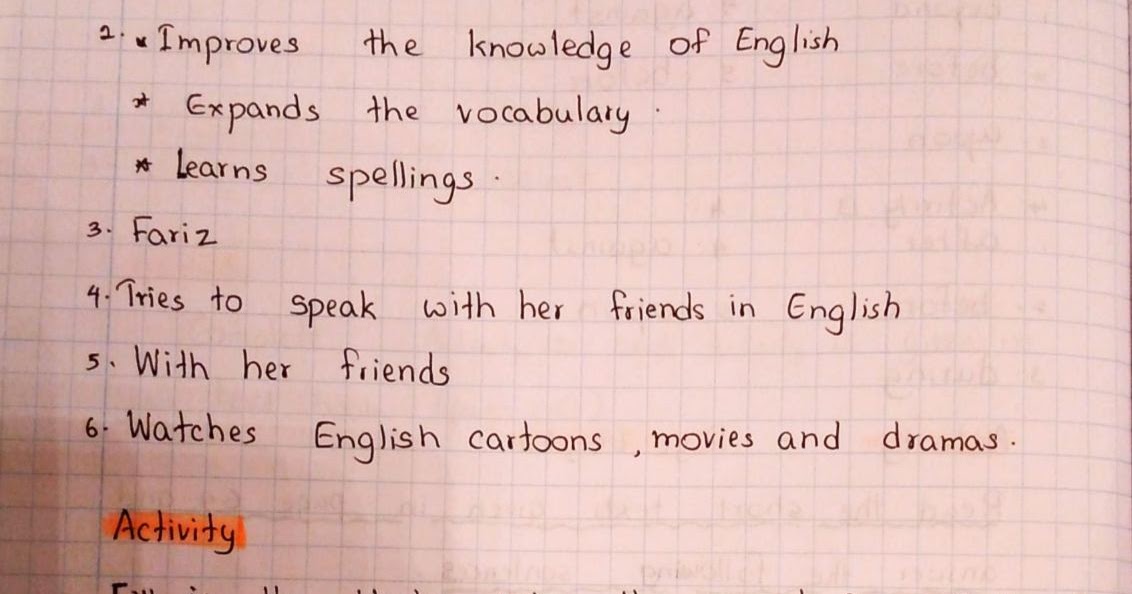 2. * Improves the knowledge of English
* Expands the vocabulary.
* Learns spellings.
3. Fariz
4. Tries to speak with her friends in English
5. With her friends
6. Watches English cartoons, movies and dramas.
Activity